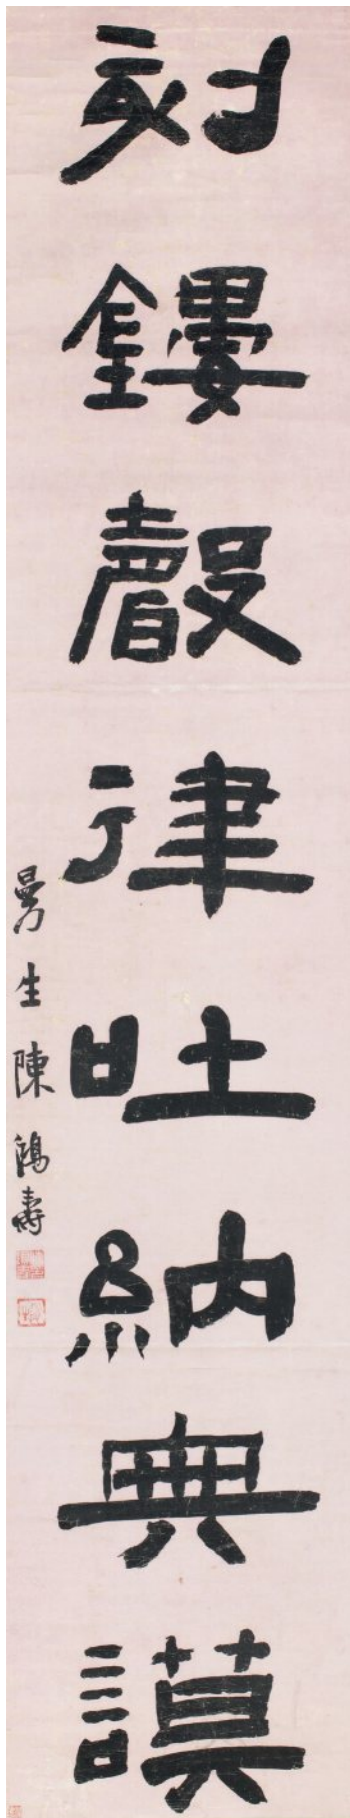 刻鏤聲律吐納典謨
曼生陳鴻壽